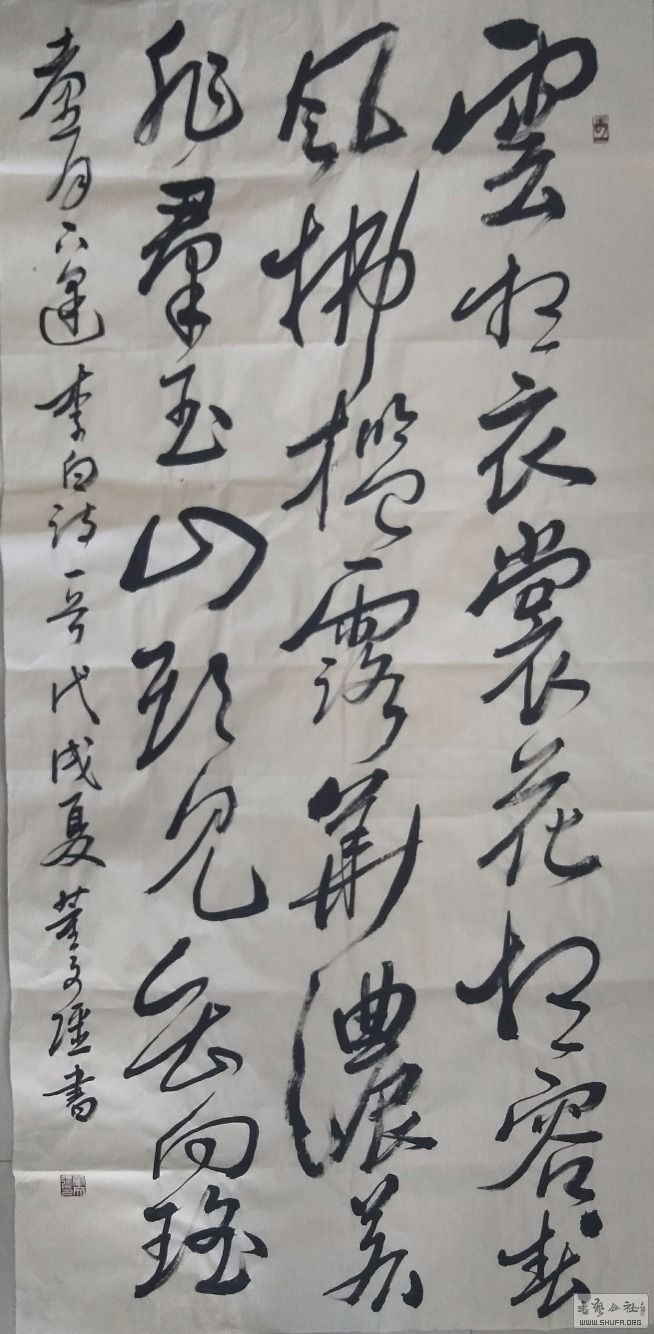 雲想衣裳花想容春
風拂檻露華濃若
非羣玉山頭見會向瑤
臺月下逢 李白詩一首 戊戌夏 董文書
書藝公社
WWW.SHUFA.ORG